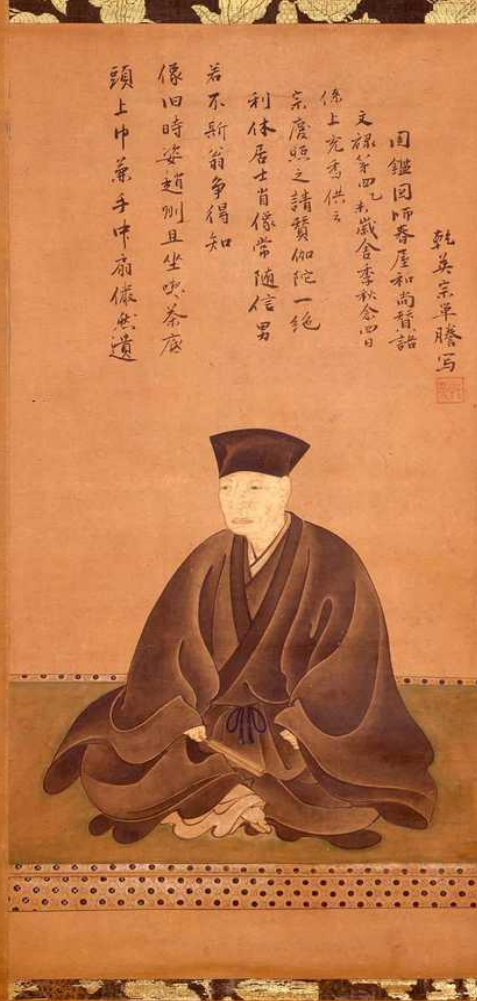 頭上巾兼手中扇儼然遺
像旧時姿趙州且坐喫茶底
若不斯翁争得知
利休居士肖像常随信男
宗慶照之請賛伽陀一絶
係上充香供云
文禄第四乙未歳舎季秋念四日
円鑑国師春屋和尚賛語
乾英宗単謄写